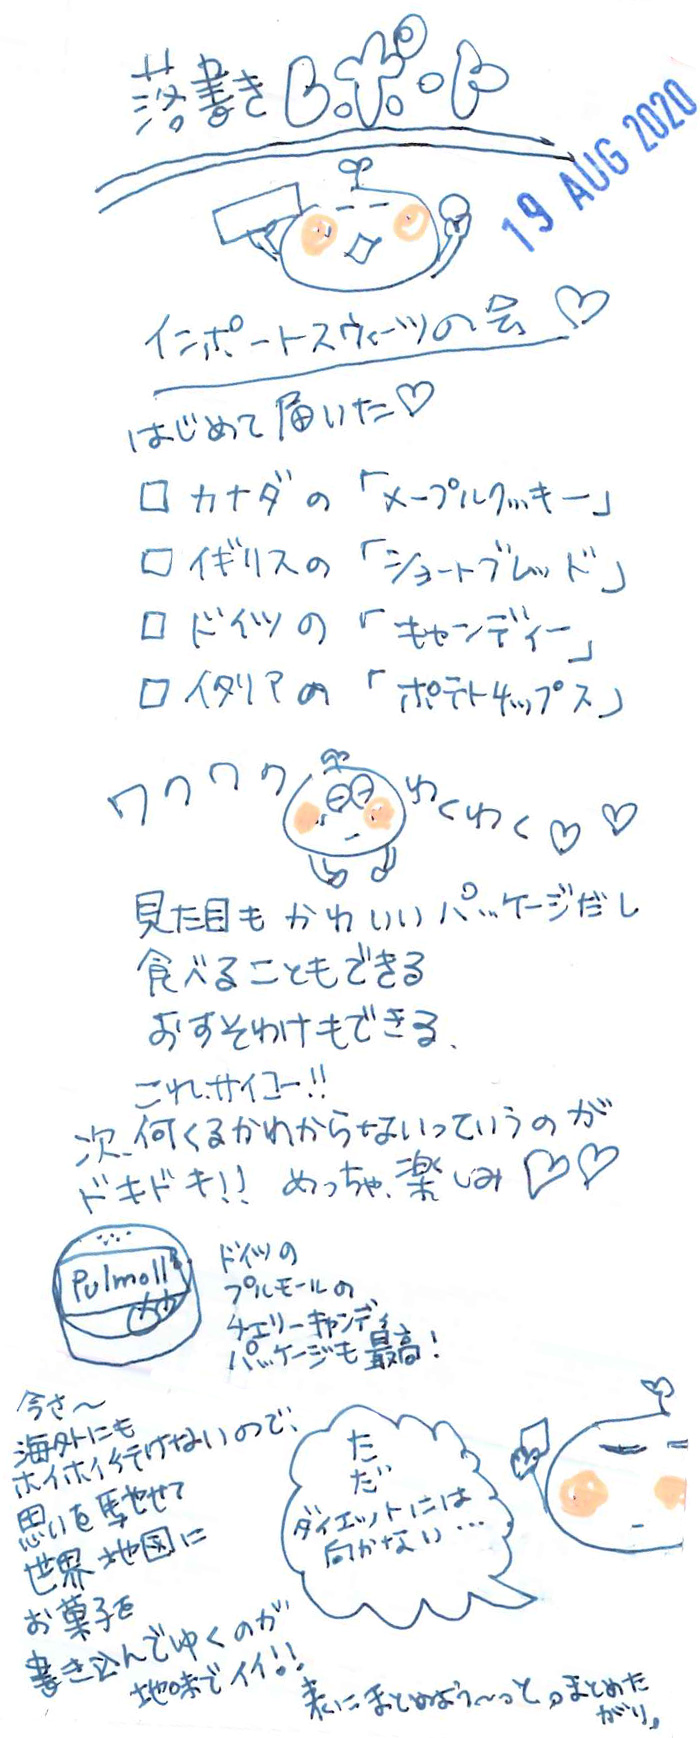 落書きレポート
19 AUG 2020
インポートスウィーツの会♡
はじめて届いた♡
□ カナダの「メープルクッキー」
□ イギリスの「ショートブレッド」
□ ドイツの「キャンディー」
□ イタリアの「ポテトチップス」
ワクワクわくわく♡♡
見た目もかわいいパッケージだし
食べることもできる
おすそわけもできる、
これ、サイコー!!
次、何くるかわからないっていうのが
ドキドキ!! めっちゃ、楽しみ♡♡
Pulmoll
ドイツの
プルモールの
チェリーキャンディ
パッケージも最高!
今さ〜
海外にも
ホイホイ行けないので、
思いを馳せて
世界地図に
お菓子を
書き込んでゆくのが
地味でイイ!!
ただ
ダイエットには
向かない…
表にまとめよう〜っと。まとめた
がり。